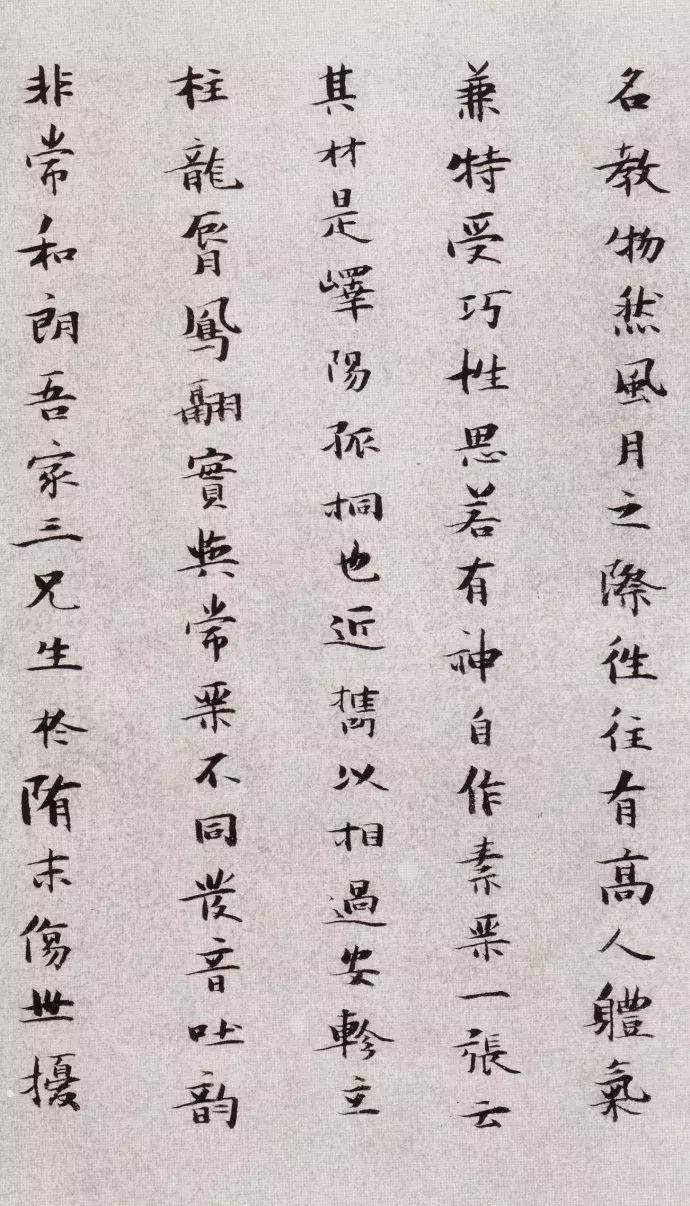 名教物然風月之際徃往有高人體氣
兼特受巧性思若有神自作素琹一張云
其材是嶧陽孤桐也近擕以相過安軫立
柱龍脣鳳翮實與常琹不同發音吐韵
非常和朗吾家三兄生於隋末傷世擾